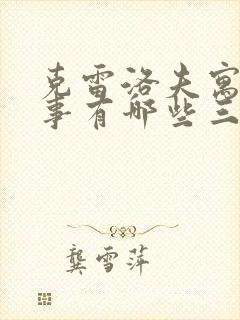 克雷洛夫寓
事有哪些三
龚雪萍